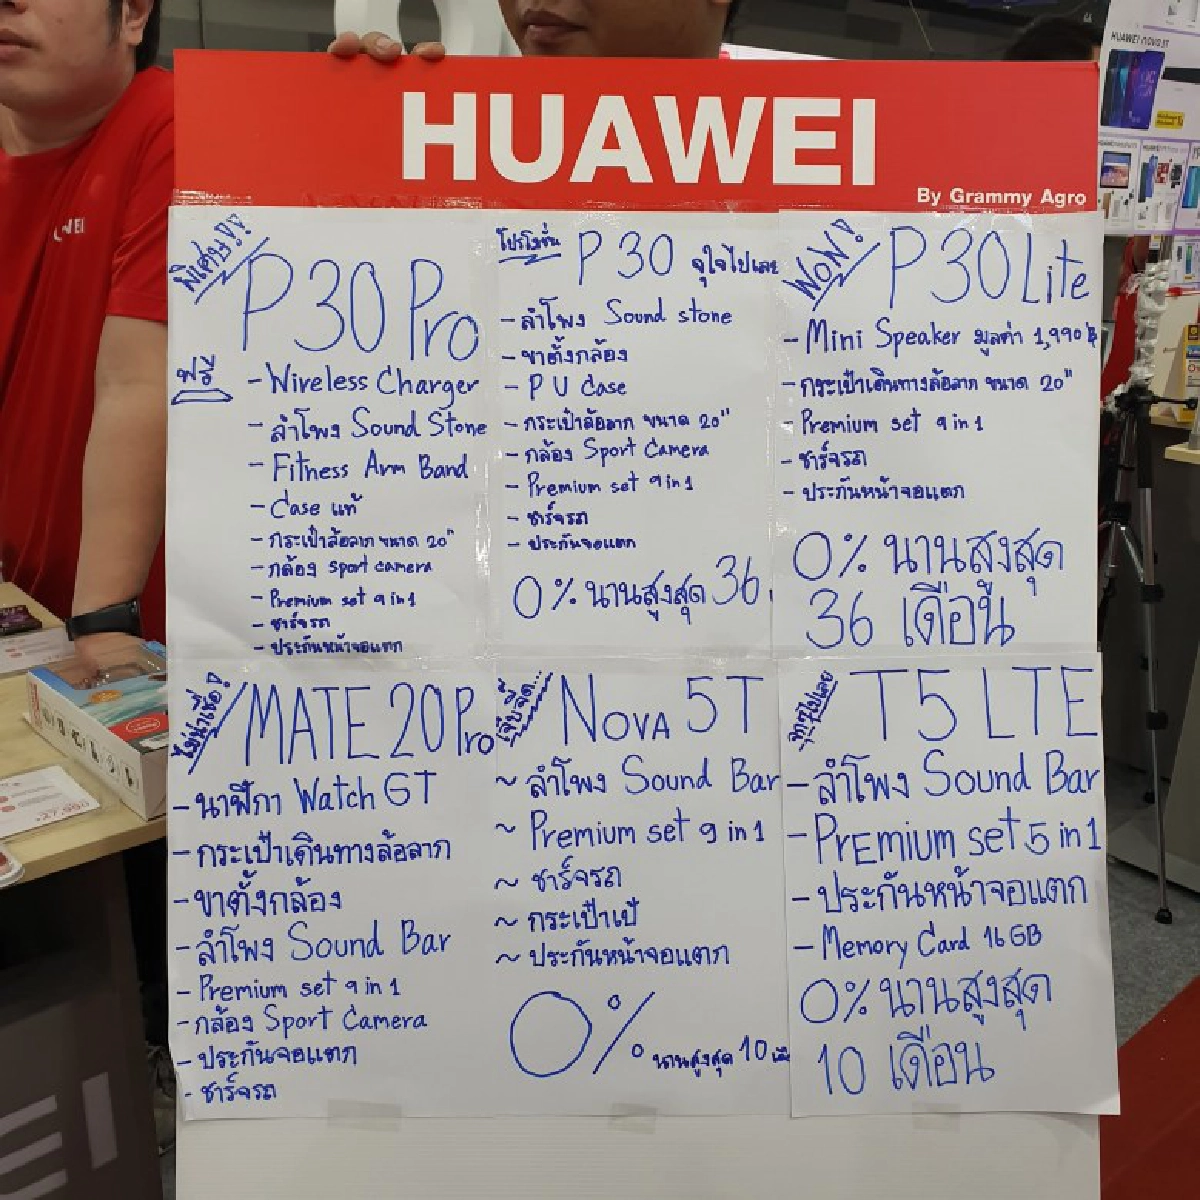 HUAWEI
By Grammy Agro
พิเศษ!!
P30 Pro
ฟรี
- Wireless Charger
- ลำโพง Sound Stone
- Fitness Arm Band
- Case แท้
- กระเป๋าล้อลาก ขนาด 20"
- กล้อง sport camera
- Premium set 9 in 1
- ชาร์จรถ
- ประกันหน้าจอแตก
โปรโมชั่น P30 จุใจไปเลย
- ลำโพง Sound stone
- ขาตั้งกล้อง
- PU Case
- กระเป๋าล้อลาก ขนาด 20"
- กล้อง Sport Camera
- Premium set 9 in 1
- ชาร์จรถ
- ประกันจอแตก
0% นานสูงสุด 36
WOW!! P30 Lite
- Mini Speaker มูลค่า 1,990 ฿
- กระเป๋าเดินทางล้อลาก ขนาด 20"
- Premium set 9 in 1
- ชาร์จรถ
- ประกันหน้าจอแตก
0% นานสูงสุด
36 เดือน
ไม่น่าเชื่อ! MATE 20 Pro
- นาฬิกา Watch GT
- กระเป๋าเดินทางล้อลาก
- ขาตั้งกล้อง
- ลำโพง Sound Bar
- Premium set 9 in 1
- กล้อง Sport Camera
- ประกันจอแตก
- ชาร์จรถ
NOVA 5T
~ ลำโพง Sound Bar
~ Premium set 9 in 1
~ ชาร์จรถ
~ กระเป๋าเป้
~ ประกันหน้าจอแตก
0% นานสูงสุด 10
จุกๆไปเลย T5 LTE
- ลำโพง Sound Bar
- PrEmium set 5 in 1
- ประกันหน้าจอแตก
- Memory Card 16 GB
0% นานสูงสุด
10 เดือน
HUAWEI nova 5T
27,990